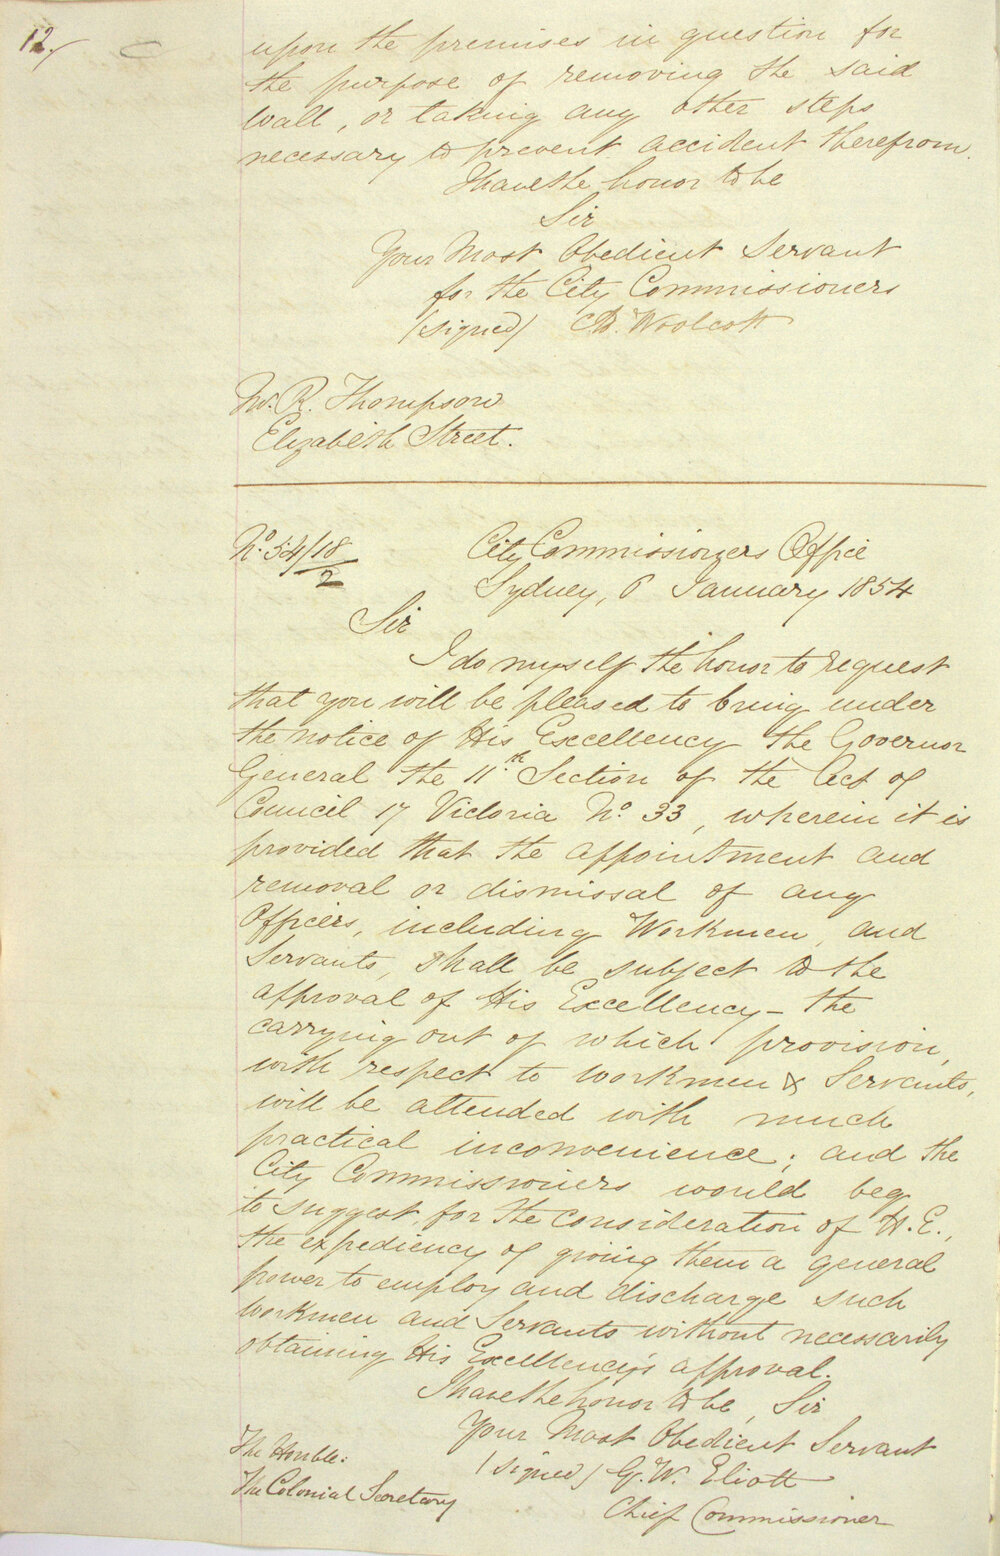 12.
upon the premises in question for
the purpose of removing the said
wall, or taking any other steps
necessary to prevent accident therefrom.
I have the honor to be
Sir
Your Most Obedient Servant
for the City Commissioners
(signed) Woolcott
Mr. R. Thompson
Elizabeth Street.
No. 54/18/2
City Commissioners Office
Sydney, 6 January 1854
Sir
I do myself the honor to request
that you will be pleased to bring under
the notice of His Excellency the Governor
General the 11th Section of the Act of
Council 17 Victoria No. 33, wherein it is
provided that the appointment and
removal or dismissal of any
Officers, including Workmen, and
Servants, shall be subject to the
approval of His Excellency – the
carrying out of which provision,
with respect to workmen & Servants,
will be attended with much
practical inconvenience; and the
City Commissioners would beg
to suggest, for the consideration of H.E.,
the expediency of giving them a general
power to employ and discharge such
workmen and Servants without necessarily
obtaining His Excellency's approval.
I have the honor to be, Sir
Your Most Obedient Servant
(signed) G. W. Eliott
Chief Commissioner
The Honble.
The Colonial Secretary